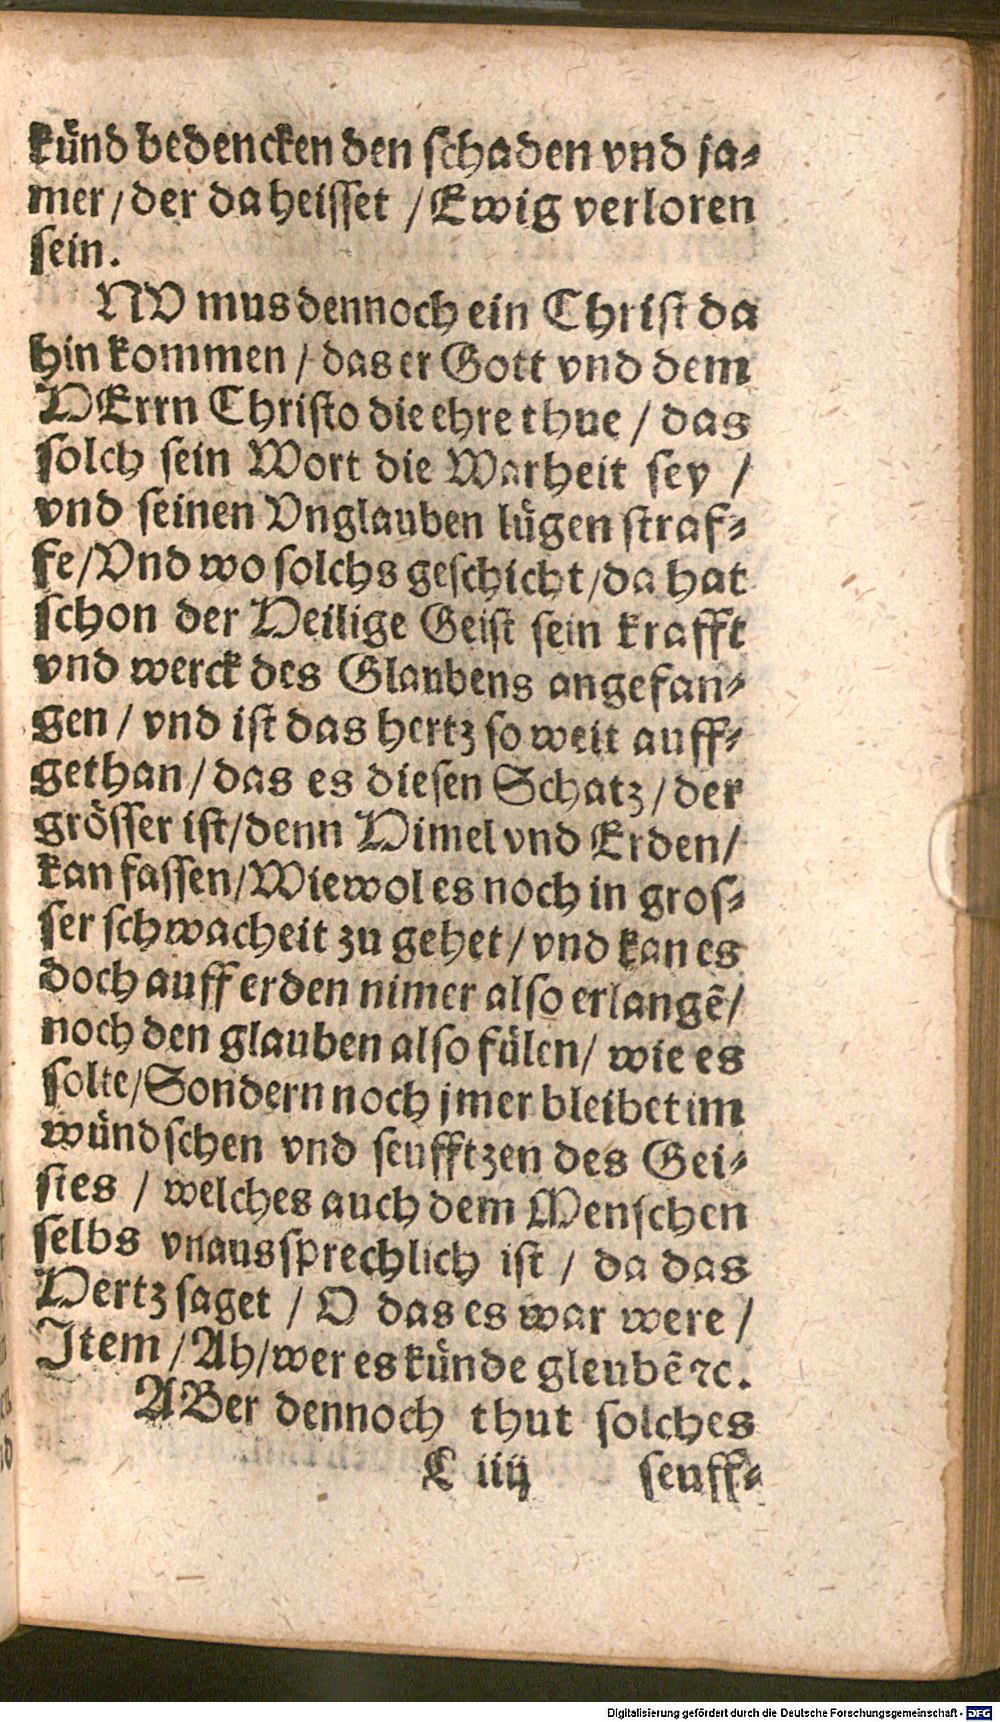 kuͤnd bedencken den schaden vnd ja⸗
mer / der da heisset / Ewig verloren
sein.
NV mus dennoch ein Christ da
hin kommen / das er Gott vnd dem
HErrn Christo die ehre thue / das
solch sein Wort die Warheit sey /
vnd seinen Vnglauben luͤgen straf⸗
fe / Vnd wo solchs geschicht / da hat
schon der Heilige Geist sein krafft
vnd werck des Glaubens angefan⸗
gen / vnd ist das hertz so weit auff⸗
gethan / das es diesen Schatz / der
groͤsser ist / denn Himel vnd Erden /
kan fassen / Wiewol es noch in gros⸗
ser schwacheit zu gehet / vnd kan es
doch auff erden nimer also erlangẽ /
noch den glauben also fuͤlen / wie es
solte / Sondern noch jmer bleibet im
wuͤndschen vnd seufftzen des Gei⸗
stes / welches auch dem Menschen
selbs vnaussprechlich ist / da das
Hertz saget / O das es war were /
Item / Ah / wer es kuͤnde gleubẽ ⁊c.
ABer dennoch thut solches
C iiij seuff⸗
Digitalisierung gefördert durch die Deutsche Forschungsgemeinschaft - DFG